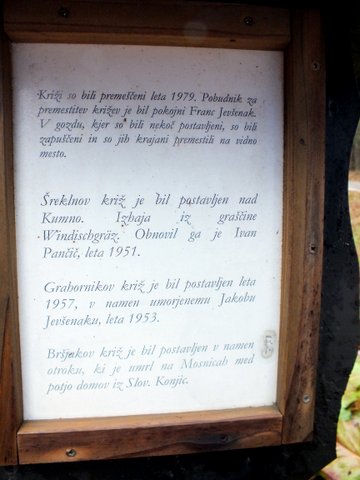 Križi so bili premeščeni leta 1979. Pobudnik za
premestitev križev je bil pokojni Franc Jevšenak.
V gozdu, kjer so bili nekoč postavljeni, so bili
zapuščeni in so jih krajani premestili na vidno
mesto.
Šreklnov križ je bil postavljen nad
Kumno. Izhaja iz graščine
Windischgräz. Obnovil ga je Ivan
Pančič, leta 1951.
Grabornikov križ je bil postavljen leta
1957, v namen umorjenemu Jakobu
Jevšenaku, leta 1953.
Bršjakov križ je bil postavljen v namen
otroku, ki je umrl na Mosnicah med
potjo domov iz Slov. Konjic.